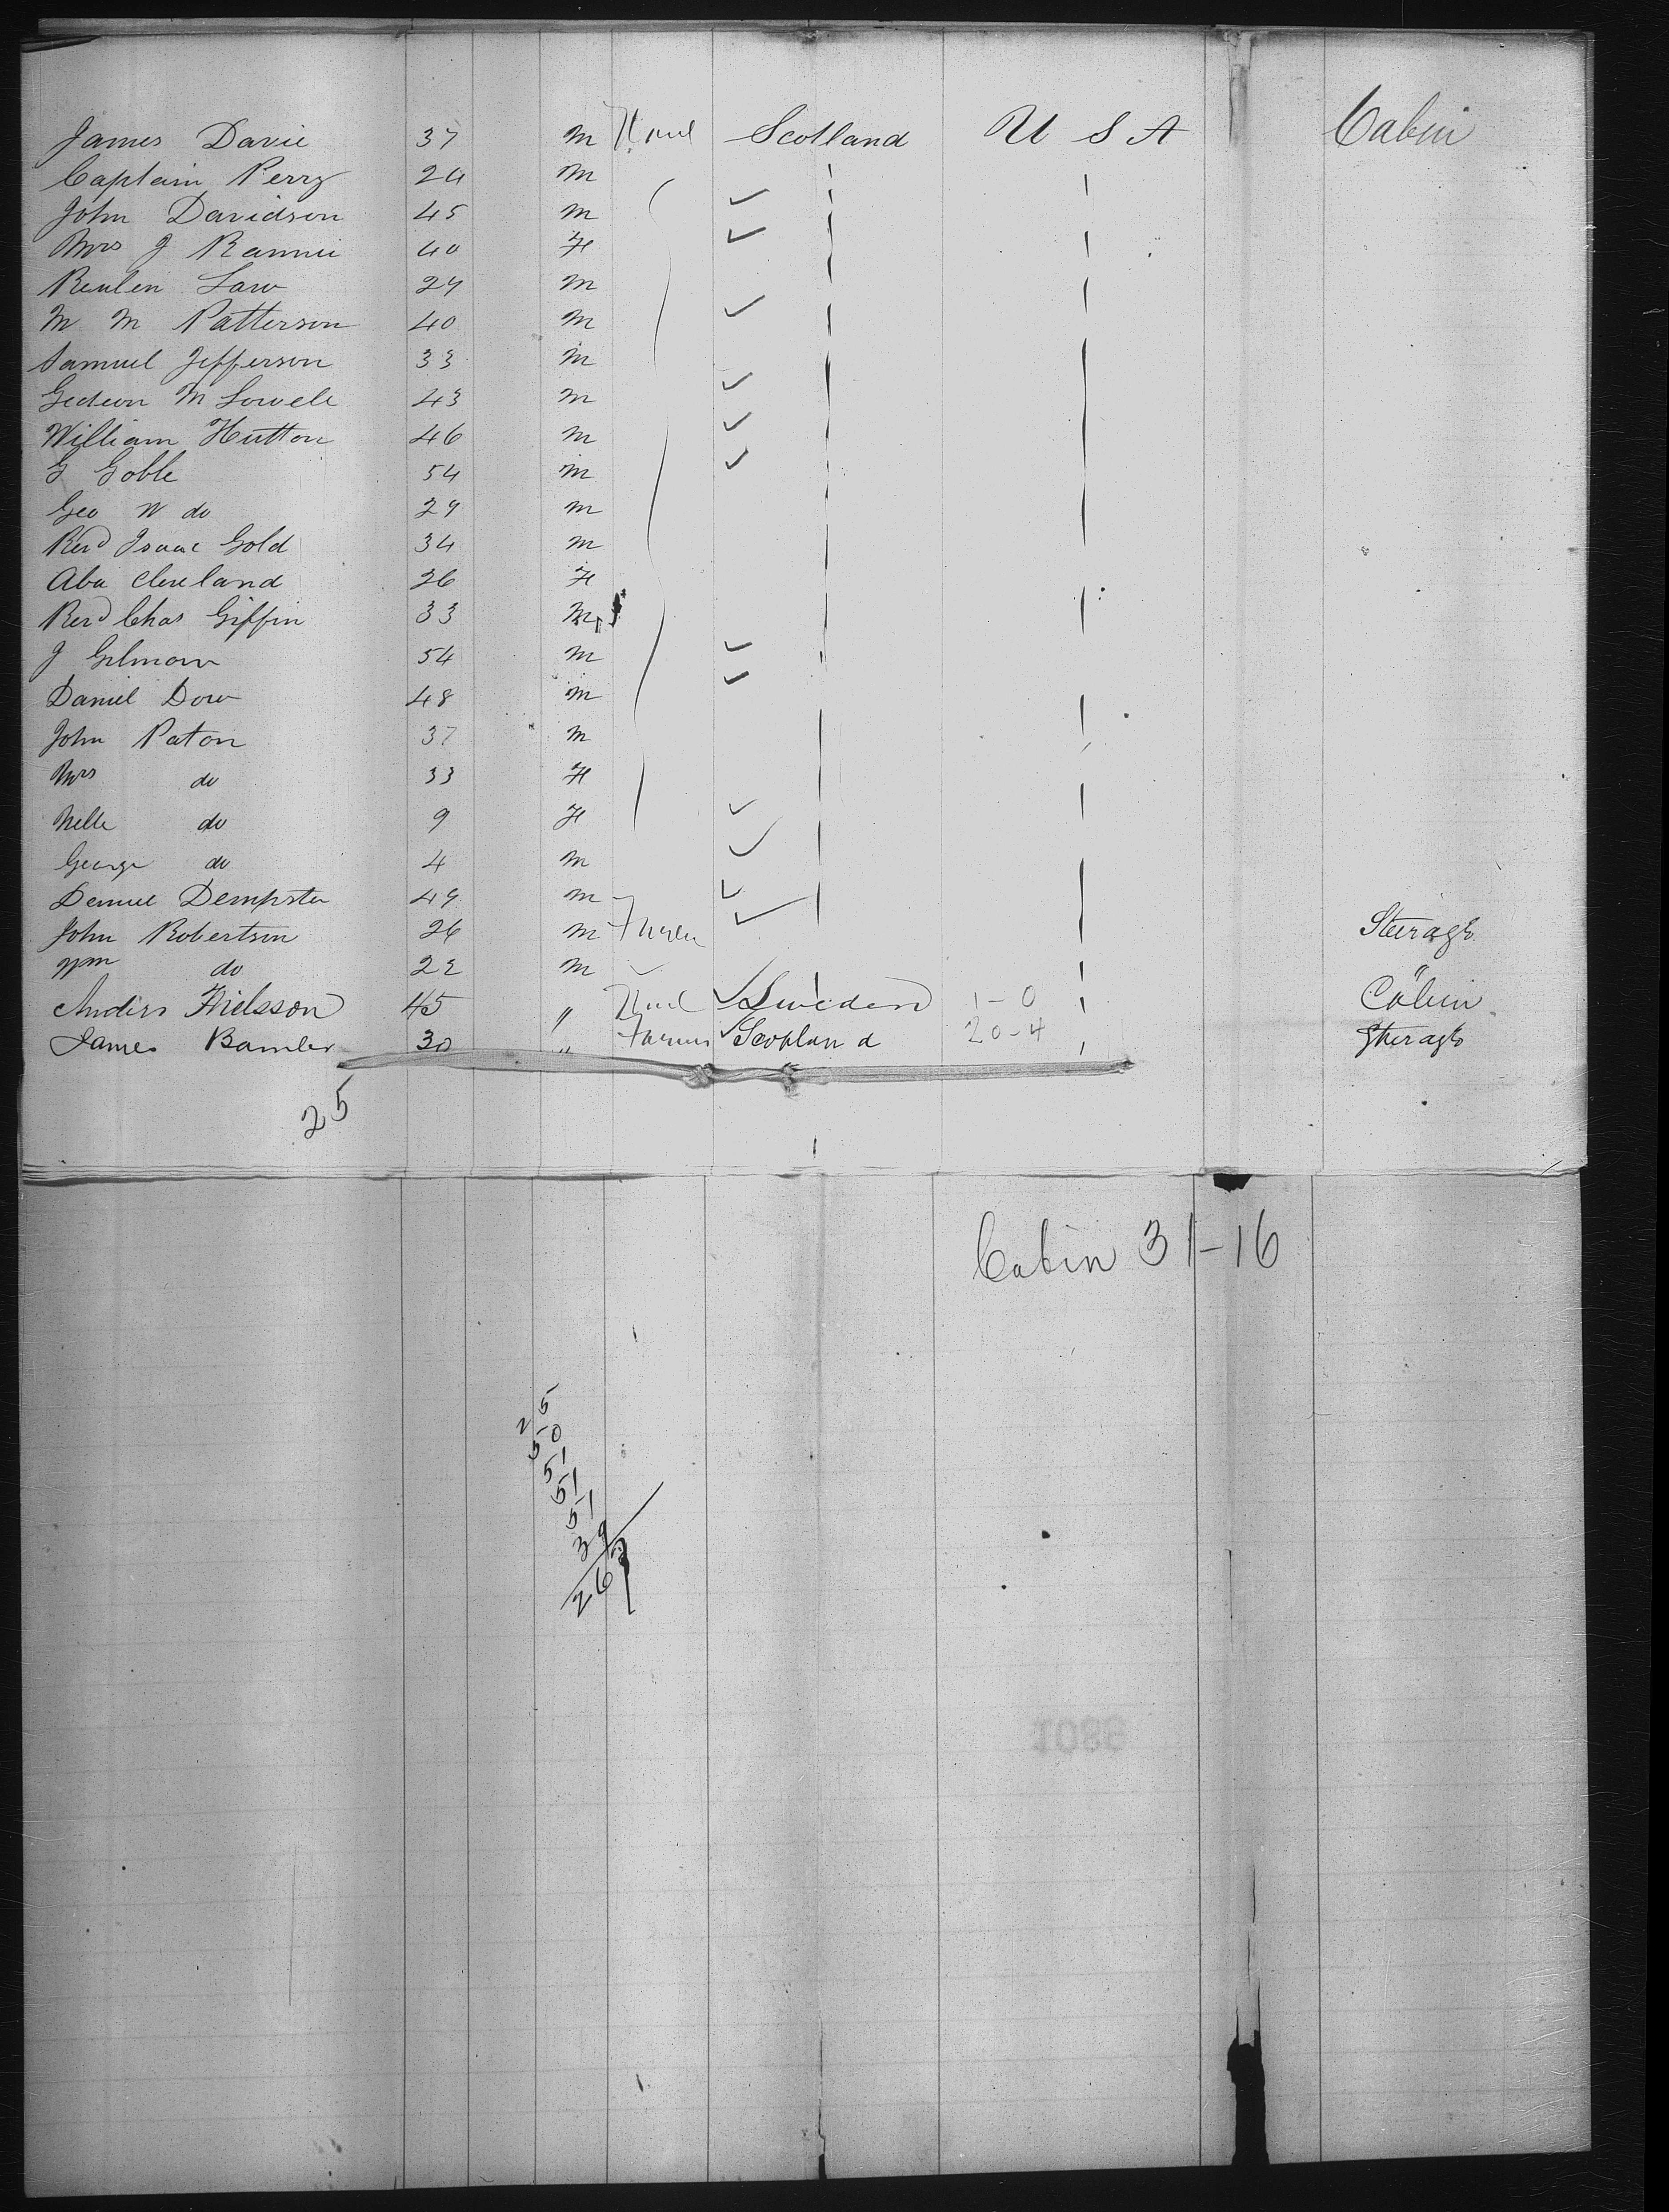 James Davie 37 M None Scotland U S A Cabin
Captain Perry 24 M
John Davidson 45 M
Mrs J Rannie 40 F
Reuben Law 29 M
M M Patterson 40 M
Samuel Jefferson 33 M
Gedeon M Lowell 43 M
William Hutton 46 M
G Goble 54 M
Geo W do 29 M
Revd Isaac Gold 34 M
Aba Cleveland 26 F
Revd Chas Giffin 33 M
J Gilmour 54 M
Daniel Dow 48 M
John Paton 37 M
Mrs do 33 F
Nelle do 9 F
George do 4 M
Daniel Dempster 49 M
John Robertson 26 M Steerage
Wm do 22 M "
Anders Nielsson 45 " Sweden 1-0 Cabin
James 30 " Farmer Scotland 20-4 Sterage
25
Cabin 31-16
25
50
51
51
51
39
267
1086